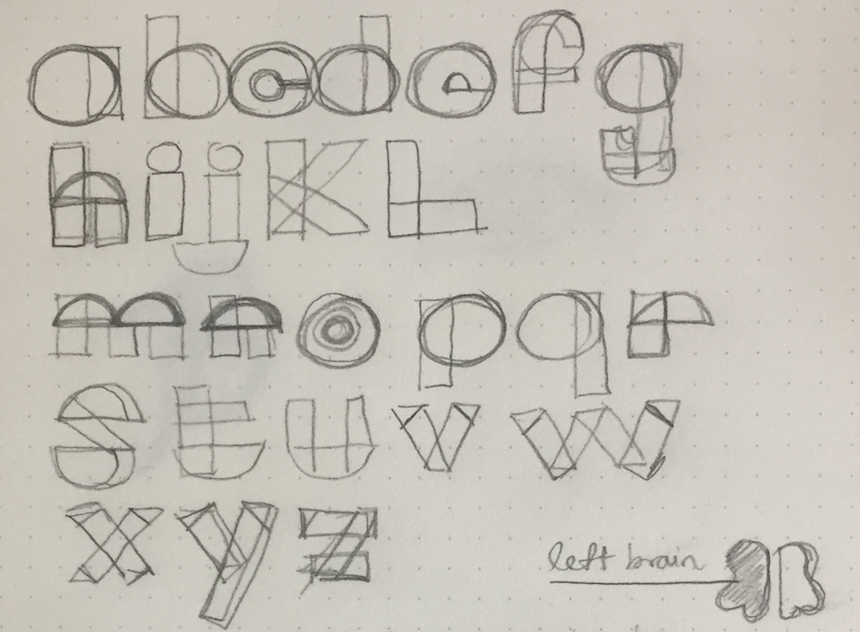 abcdefg
hijkL
mnopqr
stuvw
xyz
left brain